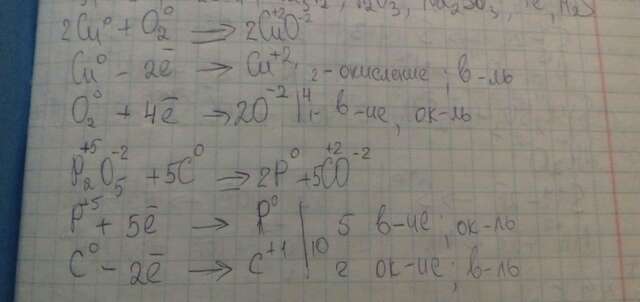 2Cu⁰ + O₂⁰ ⟹ 2Cu⁺²O⁻²
Cu⁰ - 2ē → Cu⁺² 2 - окисление; в-ль
O₂⁰ + 4ē → 2O⁻² | 4 1 - в-ие, ок-ль
P₂⁺⁵O₅⁻² + 5C⁰ ⟹ 2P⁰ + 5C⁺²O⁻²
P⁺⁵ + 5ē → P⁰ | 5 в-ие; ок-ль
C⁰ - 2ē → C⁺¹ | 10 2 ок-ие; в-ль